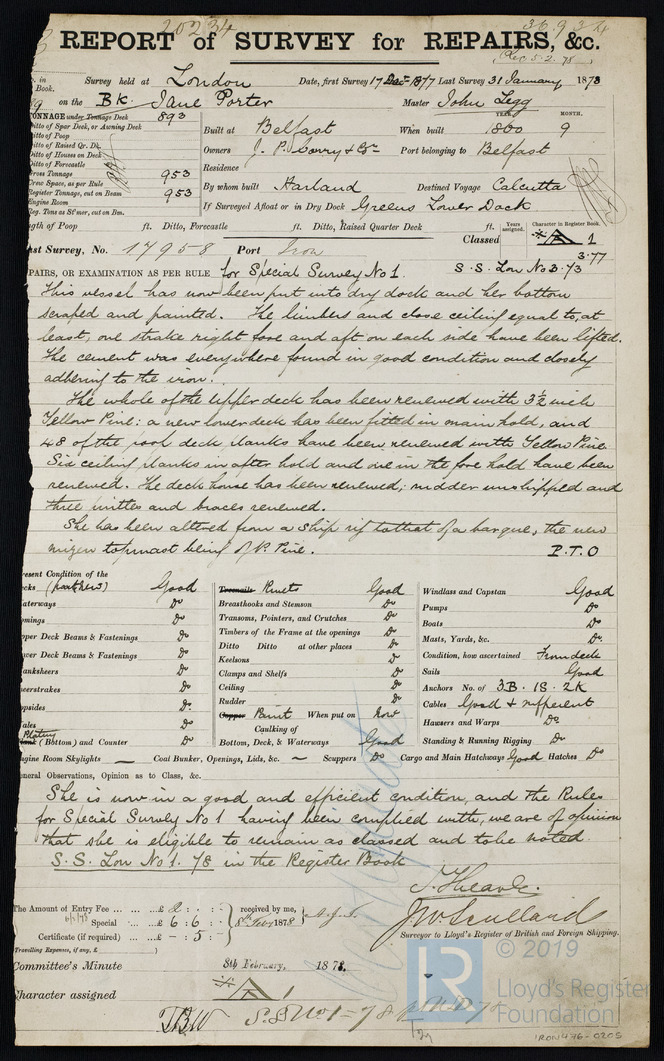 20234
36934
REPORT of SURVEY for REPAIRS, &c.
Rec 5.2.78
Survey held at London Date, first Survey 17 Dec 1877 Last Survey 31 January 1878
on the Bk. Jane Porter Master John Legg
TONNAGE under Tonnage Deck 893
Ditto of Spar Deck, or Awning Deck
Ditto of Poop
Ditto of Raised Qr. Dk.
Ditto of Houses on Deck
Ditto of Forecastle
Gross Tonnage 953
Crew Space, as per Rule
Register Tonnage, cut on Beam 953
Engine Room
Reg. Tons as St'mer, cut on Bm.
YEAR. MONTH.
Built at Belfast When built 1860 9
Owners J. P. Corry & Co. Port belonging to Belfast
Residence
By whom built Harland Destined Voyage Calcutta
If Surveyed Afloat or in Dry Dock Greens Lower Dock
Length of Poop ft. Ditto, Forecastle ft. Ditto, Raised Quarter Deck ft.
Years assigned. Character in Register Book.
Last Survey, No. 17958 Port Iron Classed A 1
3.77
REPAIRS, OR EXAMINATION AS PER RULE for Special Survey No 1. S.S. Lon No 3.73
This vessel has now been put into dry dock and her bottom
scraped and painted. The limbers and close ceiling equal to, at
least, one strake right fore and aft on each side have been lifted.
The cement was everywhere found in good condition and closely
adhering to the iron.
The whole of the upper deck has been renewed with 3½ inch
Yellow Pine: a new lower deck has been fitted in main hold, and
48 of the poop deck planks have been renewed with Yellow Pine
Six ceiling planks in after hold and one in the fore hold have been
renewed. The deck house has been renewed; rudder unshipped and
three pintles and braces renewed.
She has been altered from a ship rig to that of a barque, the new
mizen topmast being of P. Pine. P.T.O
Present Condition of the
Decks (partners) Good
Waterways Do
Comings Do
Upper Deck Beams & Fastenings Do
Lower Deck Beams & Fastenings Do
Planksheers Do
Sheerstrakes Do
Topsides Do
Wales Do
Plating Plank (Bottom) and Counter Do
Treenails Rivets Good
Breasthooks and Stemson Do
Transoms, Pointers, and Crutches Do
Timbers of the Frame at the openings Do
Ditto Ditto at other places Do
Keelsons Do
Clamps and Shelfs Do
Ceiling Do
Rudder Do
Copper Paint When put on Now
Caulking of
Bottom, Deck, & Waterways Good
Windlass and Capstan Good
Pumps Do
Boats Do
Masts, Yards, &c. Do
Condition, how ascertained From deck
Sails Good
Anchors No. of 3B. 1S. 2K
Cables Good & sufficient
Hawsers and Warps Do
Standing & Running Rigging Do
Engine Room Skylights — Coal Bunker, Openings, Lids, &c. — Scuppers Do Cargo and Main Hatchways Good Hatches Do
General Observations, Opinion as to Class, &c.
She is now in a good and efficient condition, and the Rules
for Special Survey No 1 having been complied with, we are of opinion
that she is eligible to remain as classed and to be noted
S.S. Lon No 1. 78 in the Register Book
The Amount of Entry Fee ... £ 2 : : received by me,
Special ... £ 6 : 6 : 8th Feby 1878
Certificate (if required) ... £ – : 5 :
Travelling Expenses, if any, £
Surveyor to Lloyd's Register of British and Foreign Shipping.
Committee's Minute 8th February, 1878.
Character assigned A 1
TBW
© 2019
LR
Lloyd's Register
Foundation
IRON476-0205